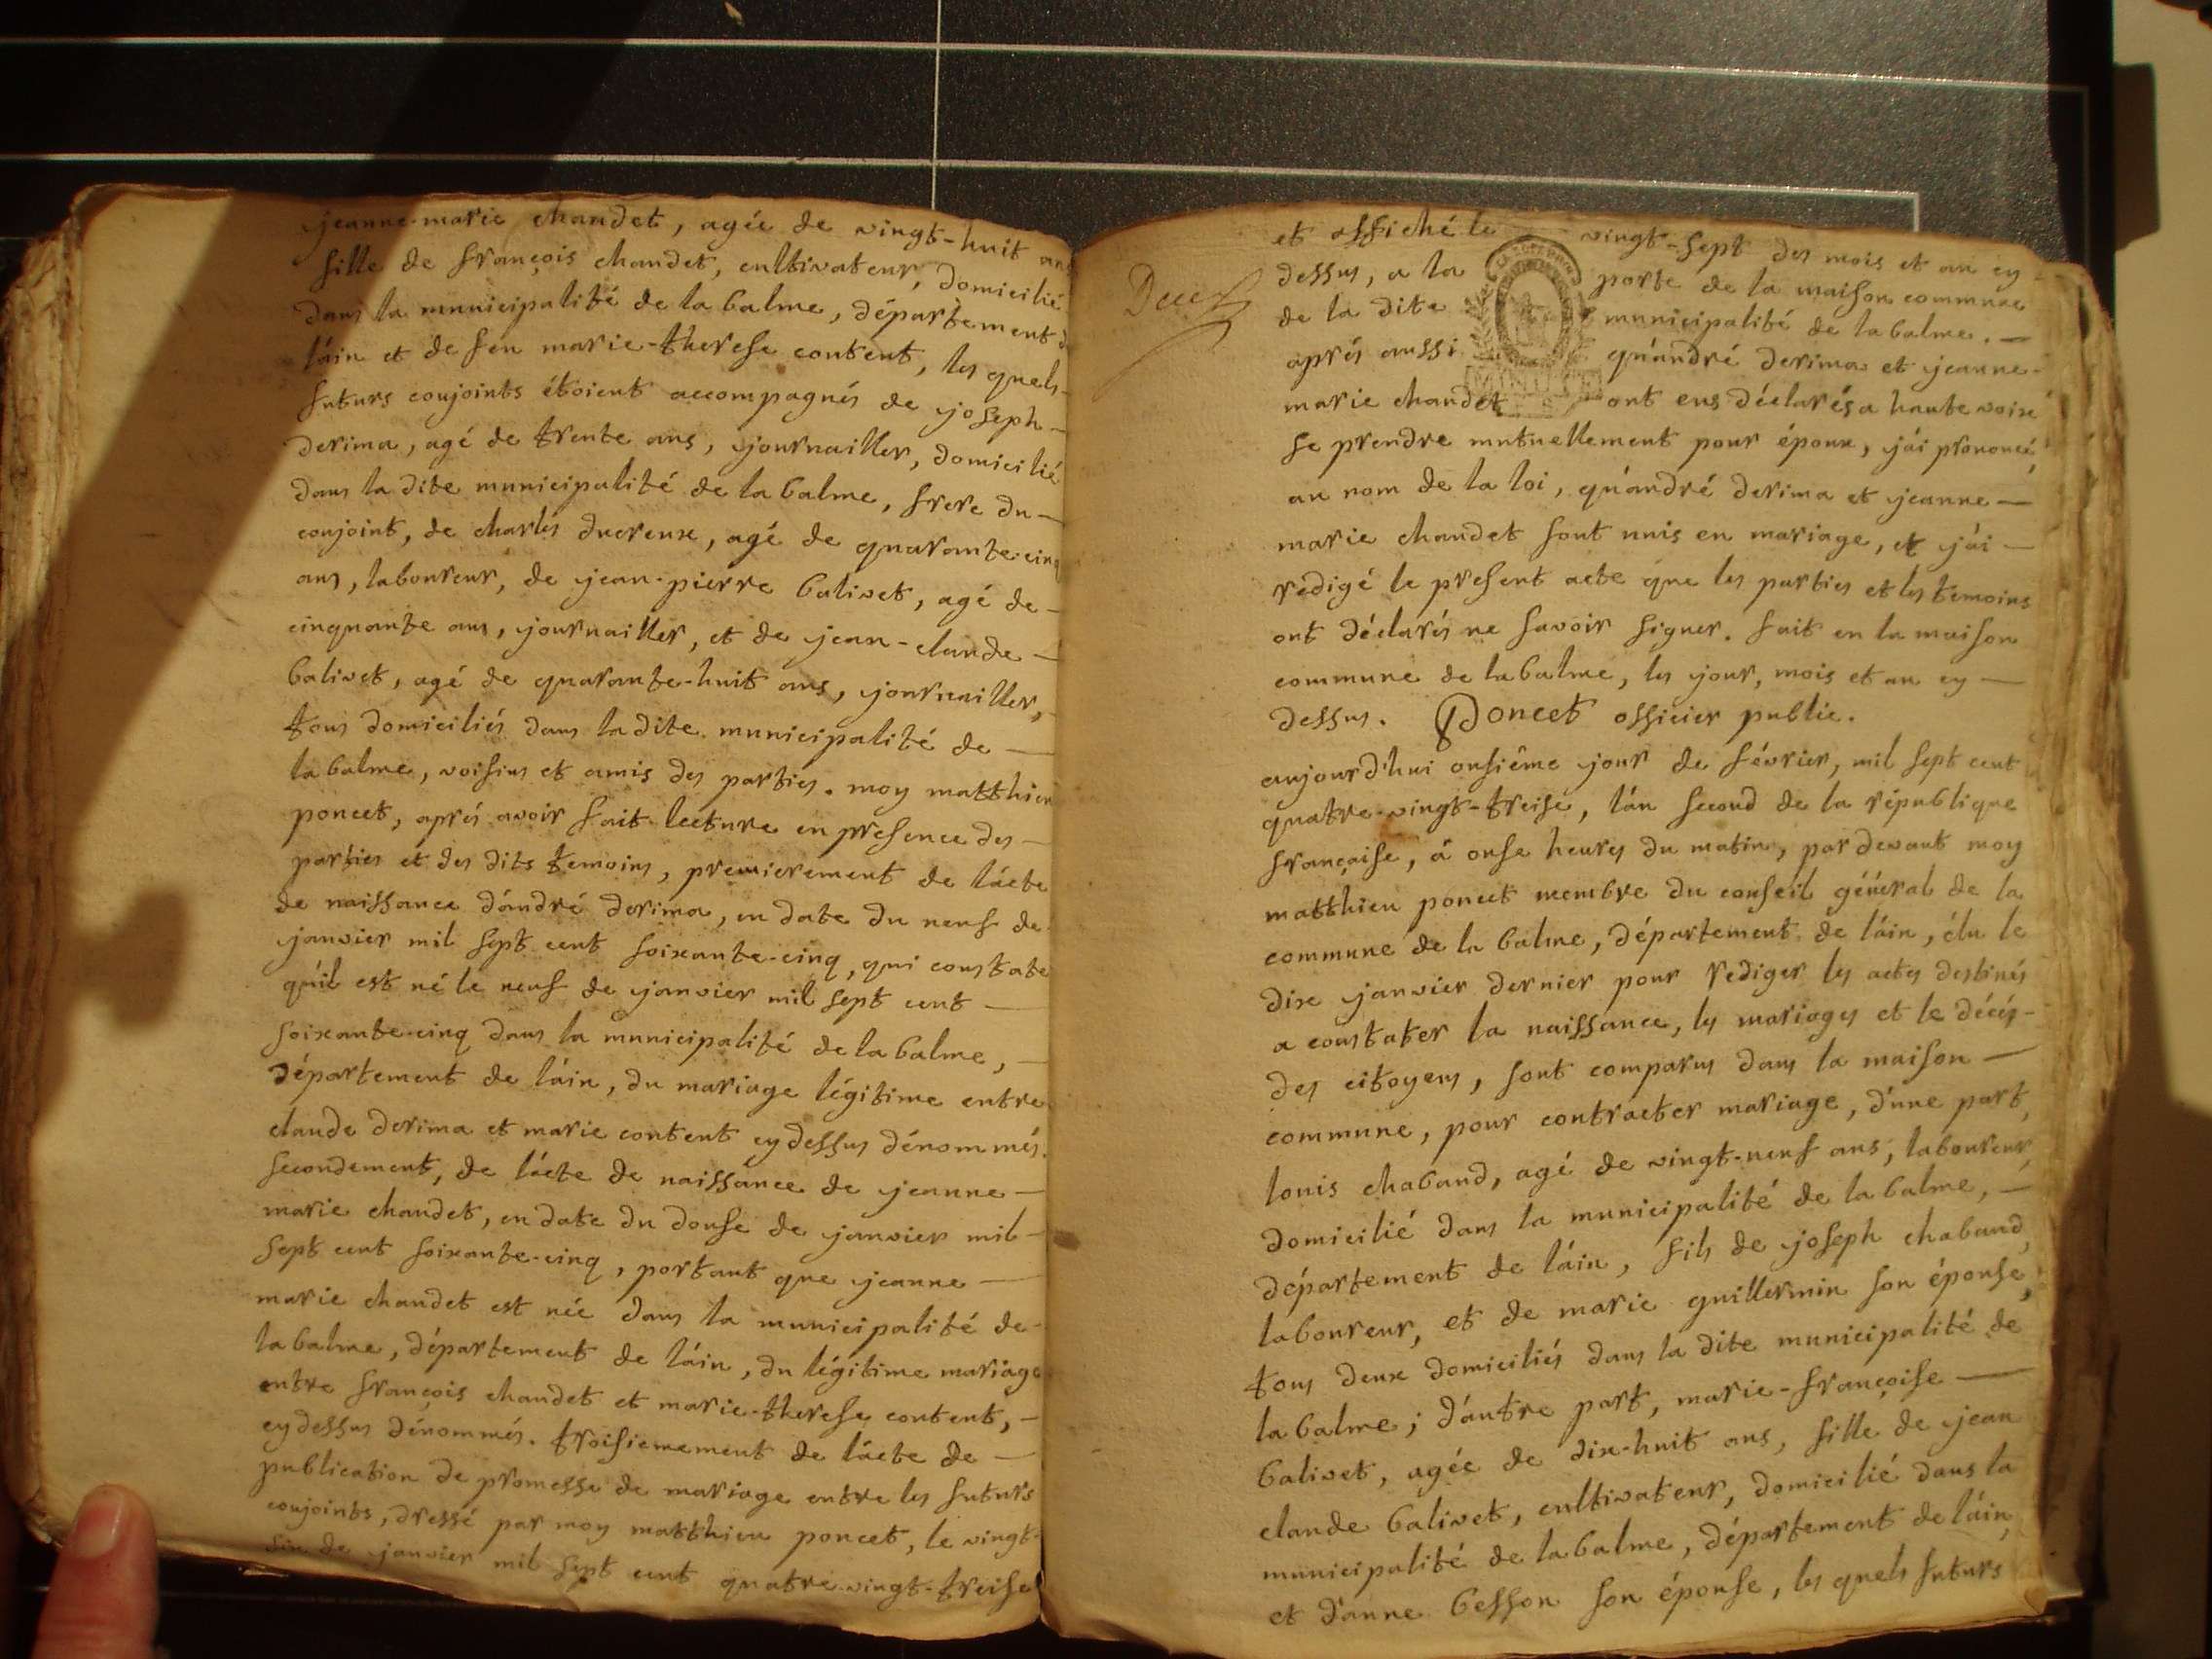 jeanne-marie chaudet, agée de vingt-huit ans
fille de françois chaudet, cultivateur, domicilié
dans la municipalité de la balme, département de
láin et de feu marie-therese content, les quels
futurs conjoints étoient accompagnés de joseph
derima, agé de trente ans, journailler, domicilié
dans la dite municipalité de la balme, frere du
conjoint, de charles ducreux, agé de quarante-cinq
ans, laboureur, de jean-piérre balivet, agé de
cinquante ans, journailler, et de jean-claude
balivet, agé de quarante-huit ans, journailler,
tous domiciliés dans la dite municipalité de
la balme, voisins et amis des parties. moy matthieu
poncet, aprés avoir fait lecture en presence des
parties et des dits temoins, premierement de lácte
de naissance dándré derima, en date du neuf de
janvier mil sept cent soixante-cinq, qui constate
qúil est né le neuf de janvier mil sept cent
soixante-cinq dans la municipalité de la balme,
département de láin, du mariage légitime entre
claude derima et marie content cy dessus dénommés.
secondement, de lácte de naissance de jeanne
marie chaudet, en date du douse de janvier mil
sept cent soixante-cinq, portant que jeanne
marie chaudet est née dans la municipalité de
la balme, département de láin, du légitime mariage
entre françois chaudet et marie-therese content,
cy dessus dénommés. troisiemement de lácte de
publication de promesse de mariage entre les futurs
conjoints, dressé par moy matthieu poncet, le vingt-
six de janvier mil sept cent quatre-vingt-treise
et affiché le vingt-sept des mois et an cy
dessus, a la porte de la maison commune
de la dite municipalité de la balme.
aprés aussi qúandré derima et jeanne-
marie chaudet ont eus déclarés a haute voix
se prendre mutuellement pour époux, jái prononcé,
au nom de la loi, qúandré derima et jeanne
marie chaudet sont unis en mariage, et jái
rédigé le present acte que les parties et les temoins
ont déclarés ne savoir signer. fait en la maison
commune de la balme, les jour, mois et an cy
dessus. Poncet officier public.
aujourd'hui onsiême jour de février, mil sept cent
quatre-vingt-treise, lán second de la république
française, á onse heures du matin, par devant moy
matthieu poncet membre du conseil général de la
commune de la balme, département de láin, élu le
dix janvier dernier pour rediger les actes destinés
a constater la naissance, les mariages et le décés
des citoyens, sont comparus dans la maison
commune, pour contracter mariage, d'une part,
louis chabaud, agé de vingt-neuf ans, laboureur,
domicilié dans la municipalité de la balme,
département de láin, fils de joseph chabaud,
laboureur, et de marie guillermin son épouse,
tous deux domiciliés dans la dite municipalité de
la balme; d'áutre part, marie-françoise
balivet, agée de dix-huit ans, fille de jean
claude balivet, cultivateur, domicilié dans la
municipalité de la balme, département de láin,
et d'anne besson son épouse, les quels futurs